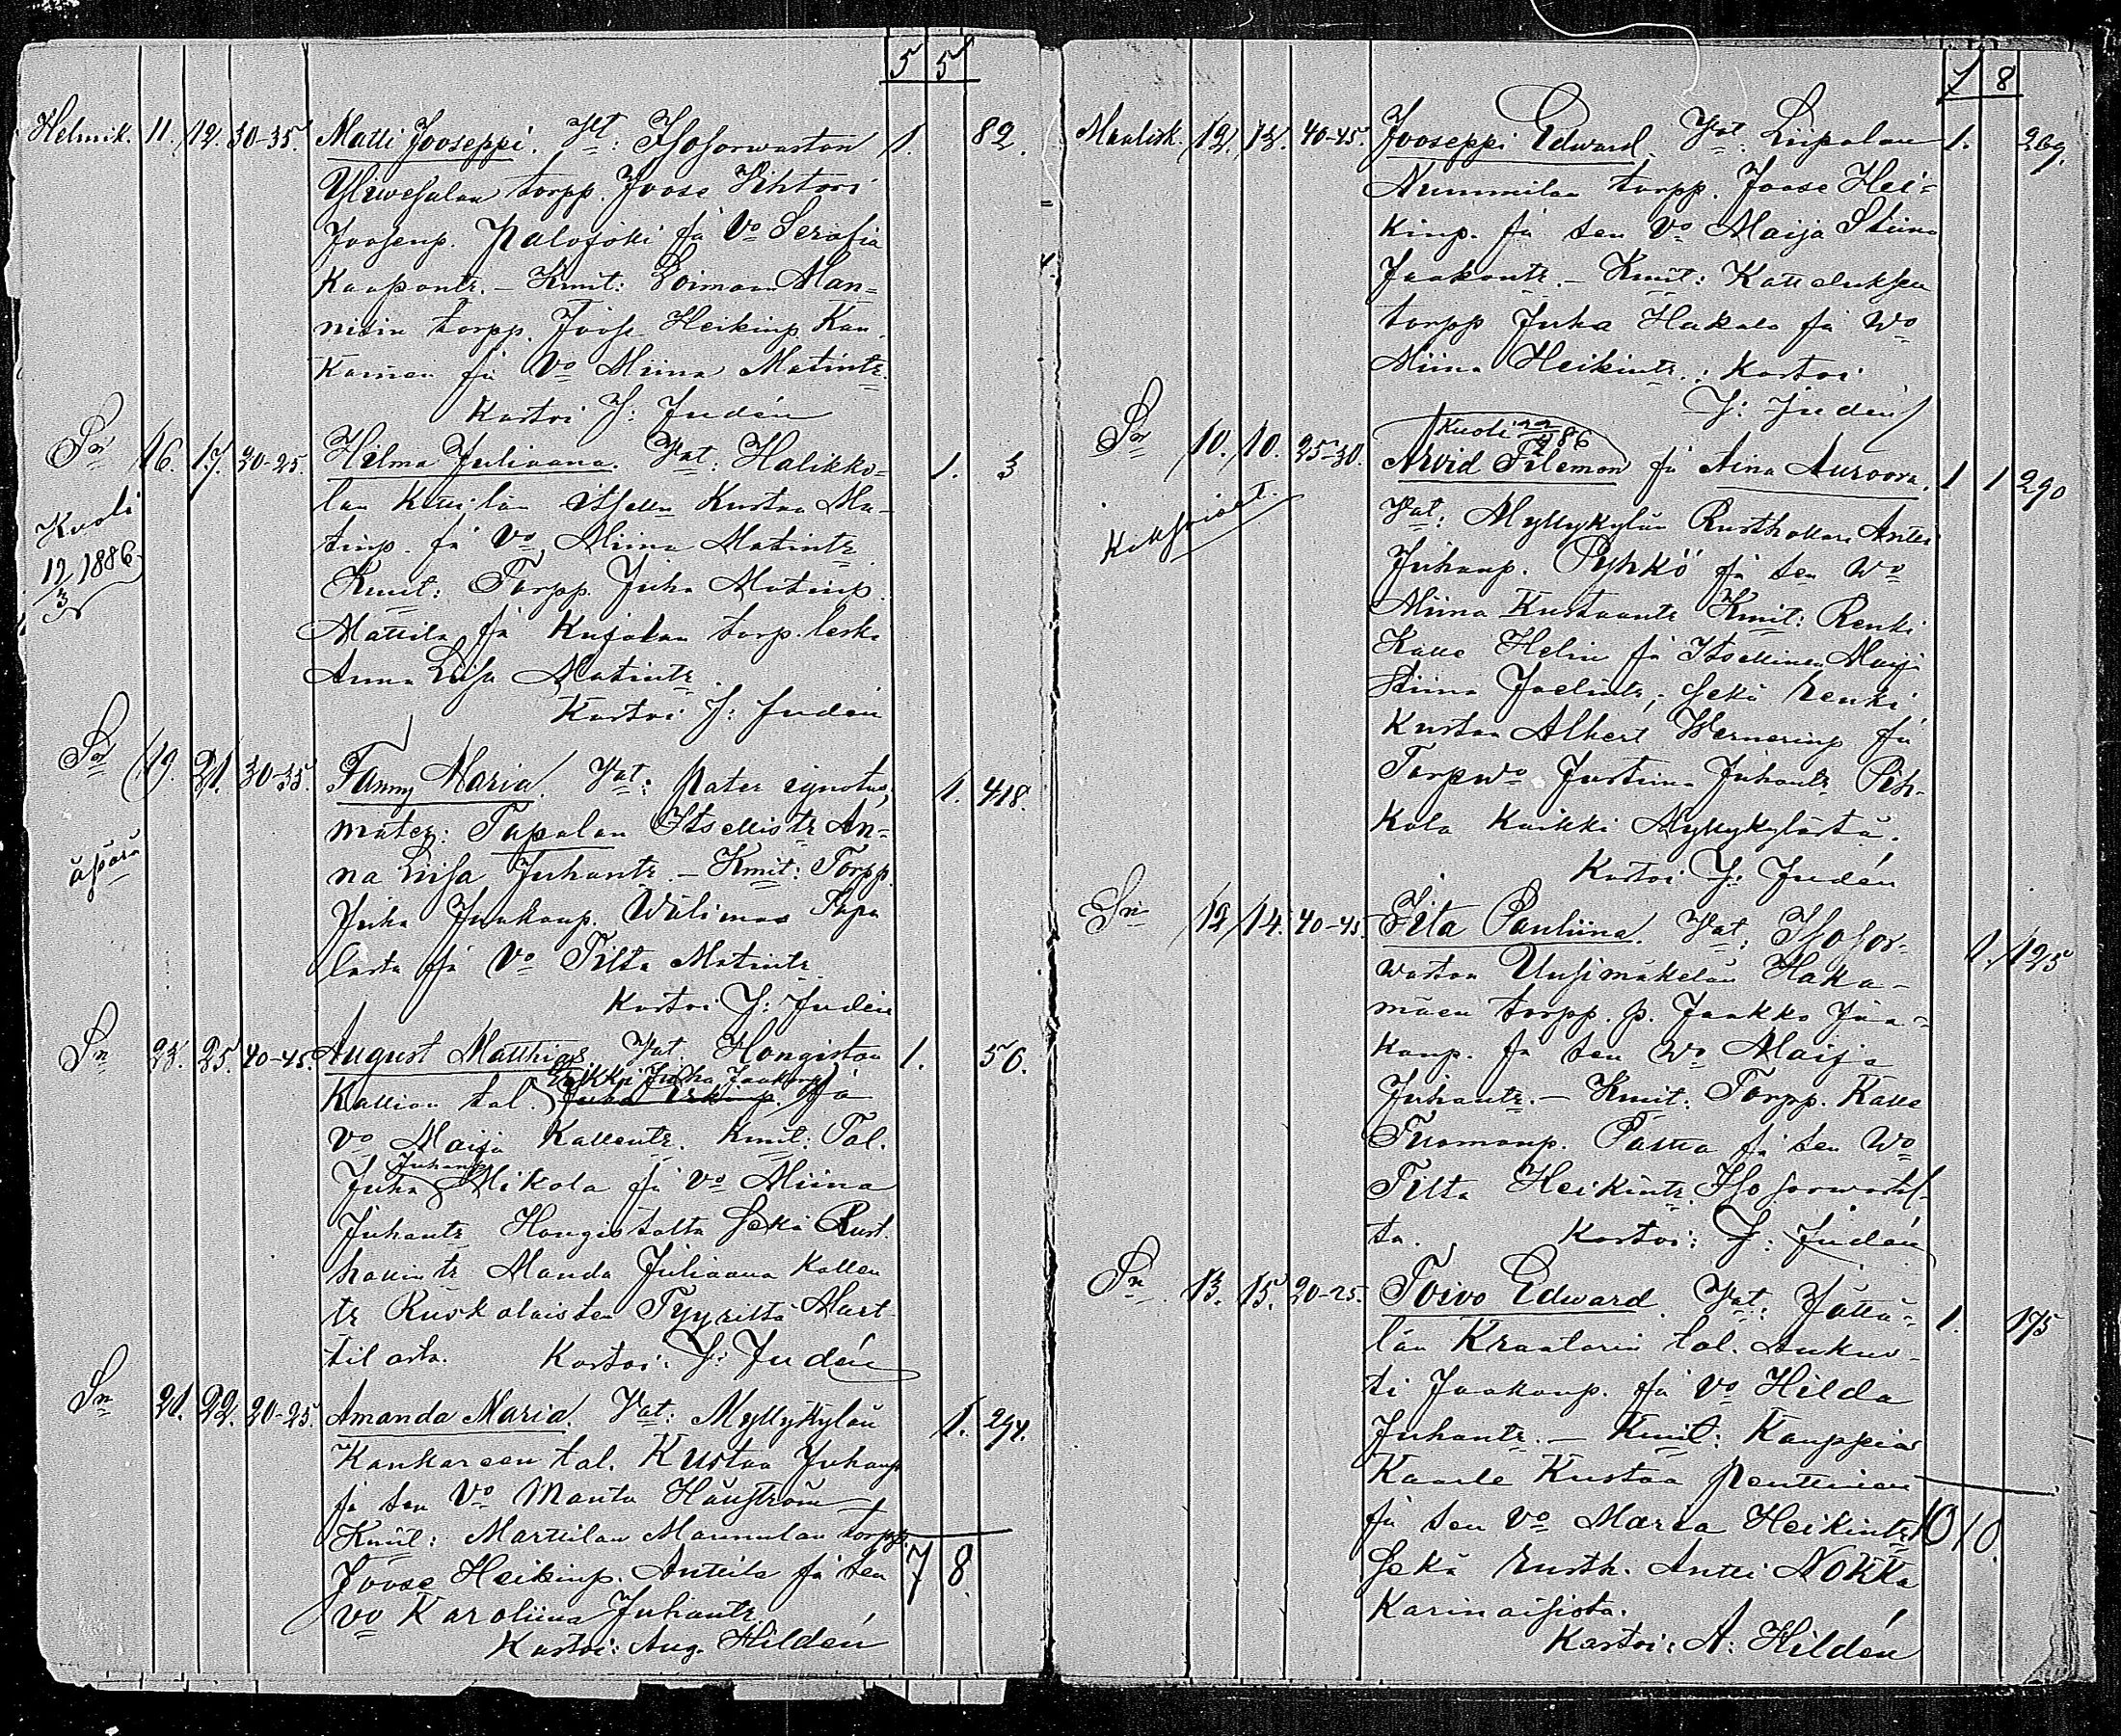 5 5
Helmik. 11. 12. 30-35. Matti Jooseppi. Vat: Isosorwaston 1. 82.
Yliwesalan torpp. Joose Wihtori
Joosenp. Palojoki ja Vo Serafia
Kaapontr. – Kmit: Loimaan Man-
nisin torpp. Joose Heikinp. Kan-
kainen ja Vo Miina Matintr.
Kastoi J: Judén
Sn 16. 17. 20-25. Hilma Juliaana. Vat: Halikko- 1. 3
lan Kullilan itsell. Kustaa Ma-
tinp. ja Vo Miina Matintr.
Kuoli 12/3 1886
Kmit: Torpp. Juha Matinp.
Mattila ja Kujalan torp. leski
Anna Liisa Matintr.
Kastoi J: Judén
Sn 19. 21. 30-35. Fanny Maria. Vat: Pater ignotus, 1. 418.
äpärä
mater: Tapalan Itsellistr An-
na Liisa Juhantr. – Kmit: Torpp.
Juha Jaakonp. Wälimaa Tapa
lasta ja Vo Tilta Matintr.
Kastoi J: Judén
Sn 23. 25. 40-45. August Matthias. Vat. Hongiston 1. 56.
Erkki Juha Jaakonp.
Kallion tal. Juha Erkinp. ja
Vo Maija Kallentr. Kmit: Tal.
Juhanp.
Juha Mikola ja Vo Miina
Juhantr Hongistolta Sekä Rust.
hollintr Manda Juliaana Kallen
tr Ruskolaisten Tyyriltä Mart-
tilasta. Kastoi: J: Judén
Sn 21. 22. 20-25. Amanda Maria. Vat: Myllykylän 1. 294.
Kankareen tal. Kustaa Juhanp
ja sen Vo Manta Häggström
Kmit: Marttilan Mannulan torpp.
Joose Heikinp. Anttila ja sen 7 8
Vo Karoliina Juhantr.
Kastoi: Aug. Hildén
7 8
Maalisk. 12. 13. 40-45. Jooseppi Edward. Vat: Liipolan 1. 269.
Nummilan torpp. Joose Hei-
kinp. ja sen Vo Maija Stiina
Jaakontr. – Kmit: Katteluksen
torpp Juha Hakala ja Wo
Miina Heikintr.: Kastoi
J: Judén
Kuoli 22/4 86
Sn 10. 10. 25-30. Arvid Filemon ja Aina Auroora. 1 1 290
Kaksoiset.
Vat: Myllykylän Rusthollari Antti
Juhanp. Pyhkö ja sen Wo
Miina Kustaantr Kmit: Renki
Kalle Helin ja Itsellinen Maija
Stiina Joelintr; Sekä renki
Kustaa Albert Wernerinp ja
Torpwo Justiina Juhantr Pih-
kala Kaikki Myllykylästä.
Kastoi J: Judén
Sn 12 14. 40-45. Fita Pauliina. Vat: Isosor- 1. 125
waston Uusimäkelän Haka-
mäen torpp. p. Jaakko Jaa-
konp. ja sen Wo Maija
Juhantr. – Kmit: Torpp. Kalle
Tuomonp. Pama ja sen Wo
Tilta Heikintr. Isosorwas-
ta. Kastoi: J: Judén
Sn 13. 15. 20-25. Toivo Edward. Vat: Jällä- 1. 175
län Kraatarin tal. Aukus-
ti Jaakonp. ja Vo Hilda
Juhantr. – Kmit: Kauppias
Kaarle Kustaa Penttinen
ja sen Vo Maria Heikintr 10 10.
Sekä rusth. Antti Nokka
Karinaisista.
Kastoi: A: Hildén